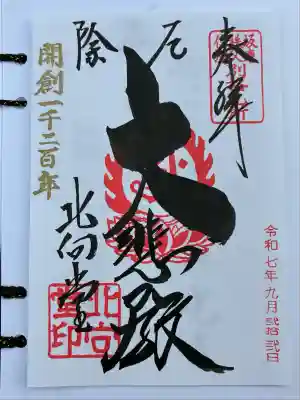 奉拝
厄除
大悲殿
北向堂
開創一千二百年
令和七年九月弐拾弐日
北向堂印